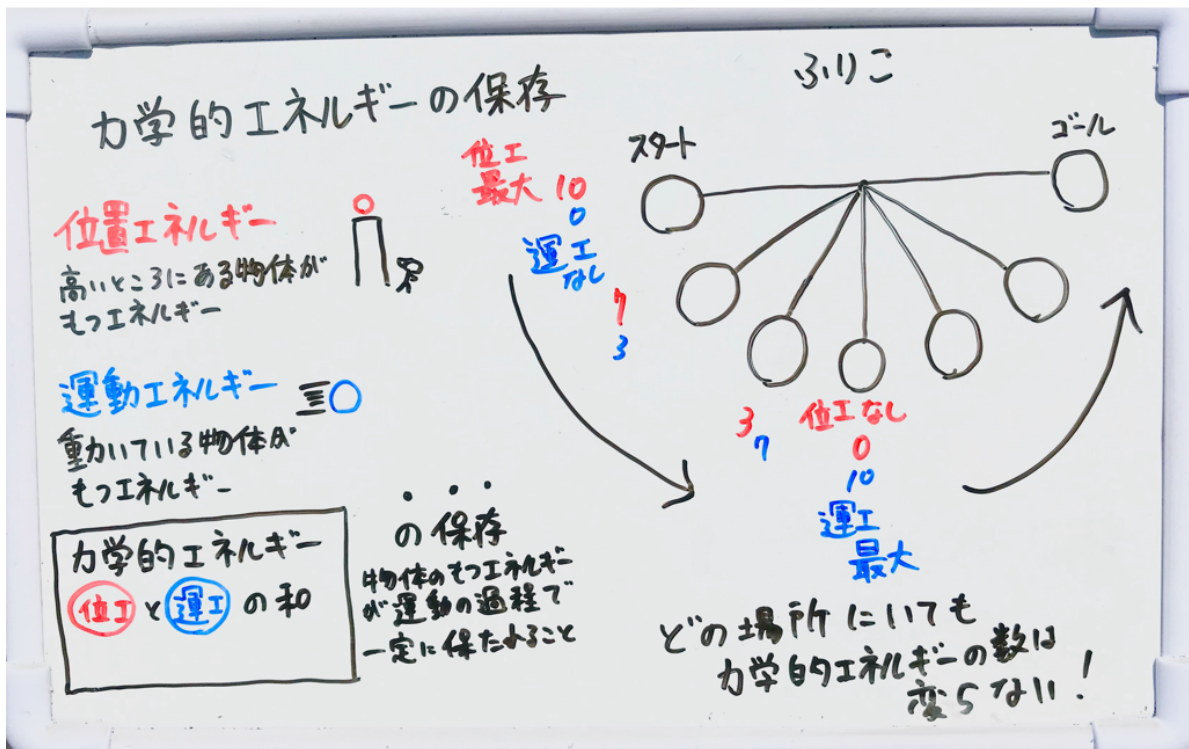 力学的エネルギーの保存
位置エネルギー
高いところにある物体が
もつエネルギー
運動エネルギー
動いている物体が
もつエネルギー
力学的エネルギー
位エと運エの和
・・・
の保存
物体のもつエネルギー
が運動の過程で
一定に保たれること
ふりこ
スタート
ゴール
位エ
最大 10
0
運エ
なし
7
3
3
7
位エなし
0
10
運エ
最大
どの場所にいても
力学的エネルギーの数は
変らない!